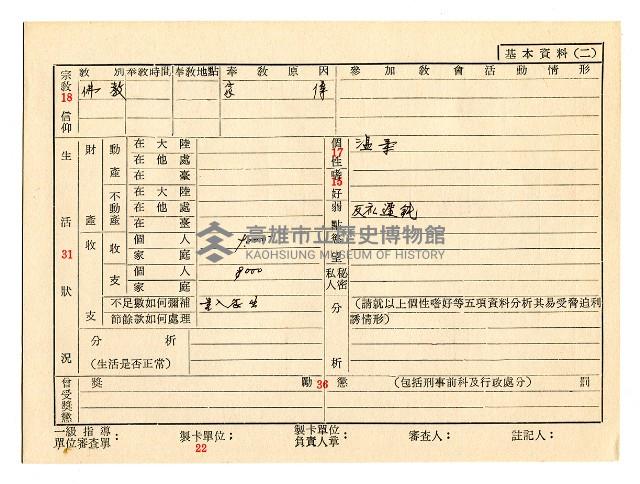 基本資料(二)
宗教 18 信仰
教別 奉教時間 奉教地點 奉教原因 參加教會活動情形
佛教 家傳
生活 31 狀況
財產
動產
在大陸
在他處
在臺
不動產
在大陸
在他處
在臺
收支
收
個人
家庭
支
個人 8000
家庭
不足數如何彌補 量入為出
節餘款如何處理
分析
(生活是否正常)
個性 17 嗜好 15 弱點慾望
溫柔
反應遲鈍
私人秘密
分析
(請就以上個性嗜好等五項資料分析其易受脅迫利
誘情形)
高雄市立歷史博物館
KAOHSIUNG MUSEUM OF HISTORY
曾受獎懲
獎勵 36 懲罰 (包括刑事前科及行政處分)
一級指導
單位審查單:
製卡單位:
22
製卡單位
負責人章:
審查人:
註記人: